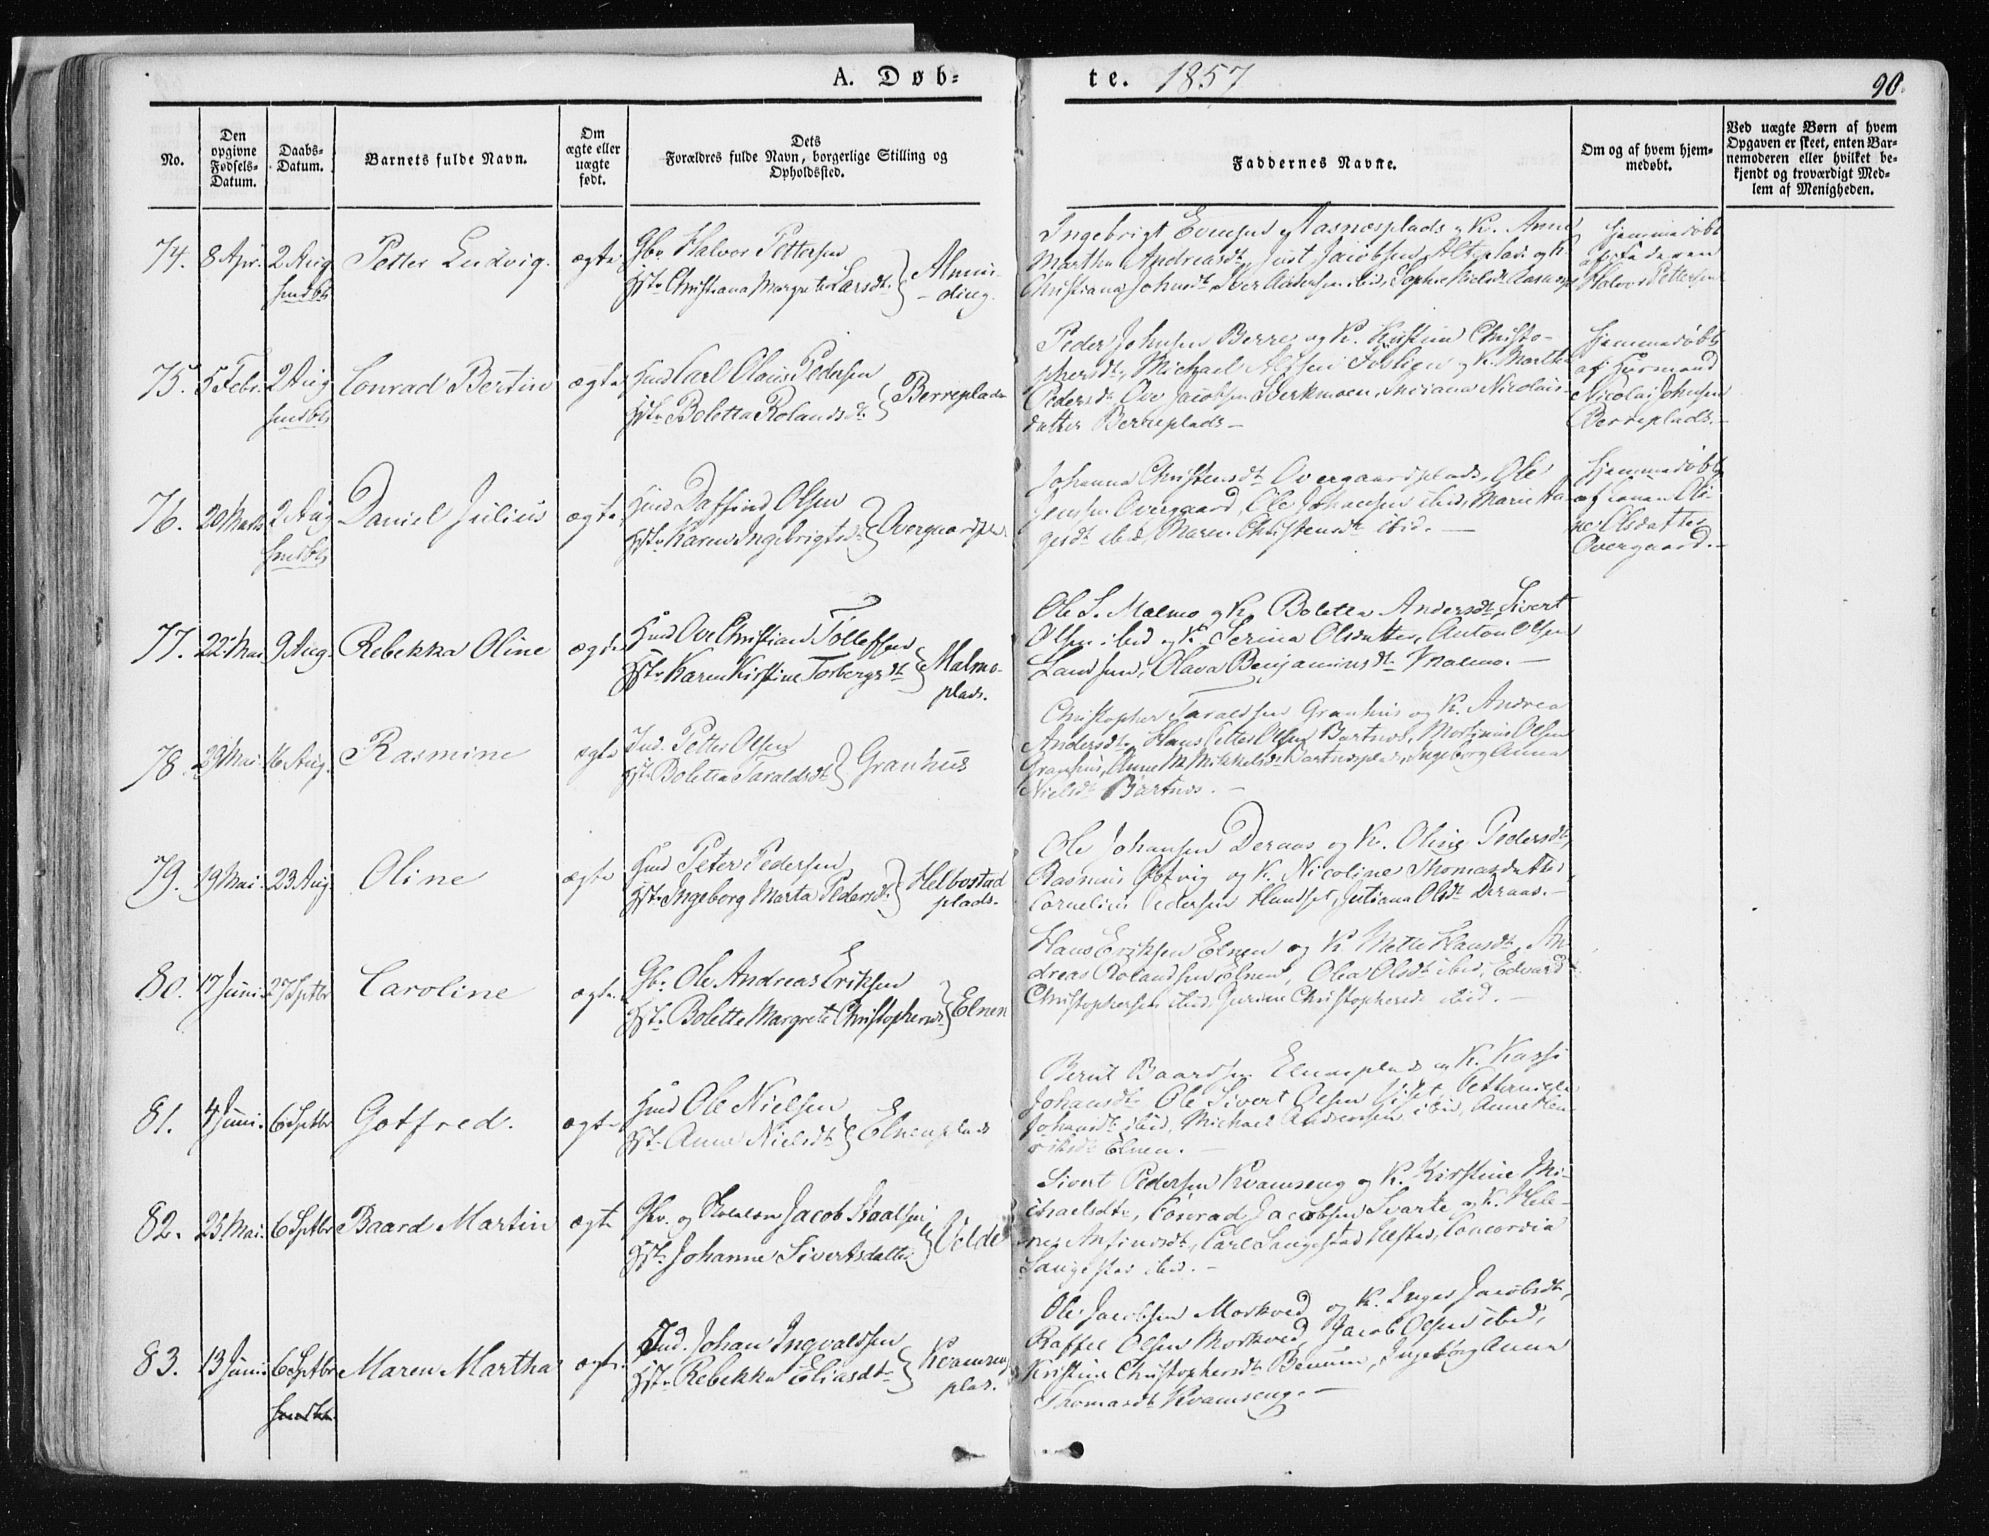 A. Døb-
te. 1857
90.
No.
Den opgivne Fødsels-Datum.
Daabs-Datum.
Barnets fulde Navn.
Om ægte eller uægte født.
Dets Forældres fulde Navn, borgerlige Stilling og Opholdssted.
Faddernes Navne.
Om og af hvem hjem-medøbt.
Ved uægte Børn af hvem Opgaven er skeet, enten Bar-nemoderen eller hvilket be-kjendt og troværdigt Med-lem af Menigheden.
74. 8 Apr. 2 Aug Petter Ludvig. ægte Gbr Halvor Pettersen
Hst. Christiana Margrete Larsdt. } Almin-
ding.
Ingebrigt Evensen Aasnæsplads og K. Anne
Martha Andreasdt, Just Jacobsen
Christiana Johnsdt, Iver Andersen ibid, Sophie Nielsdt
hjemmedøbt
af Faderen
Halvor Pettersen
75. 5 Febr. 2 Aug Conrad Bertin ægte Hmd Carl Olaus Pedersen
Hst. Boletta Rolandsdt. } Berreplads
Peder Johnsen Berre og K. Kirstine Christo-
phersdt, Michael og K. Marthe
Pedersdt, Ove Jacobsen Nicolais-
datter Berreplads –
hjemmedøbt
af Huusmand
Nicolai Johnsen
Berreplads. –
76. 20 Marts 2 Aug Daniel Julius ægte Hmd Daffind Olsen
Hst. Karen Ingebrigtsd } Overgaardspl.
Johanna Christensdt Overgaardsplads, Ole
Jensen Overgaard, Ole Johansen ibid, Maren
ibid, Maren Christensdt ibid. –
hjemmedøbt
af
Olsdatter
Overgaard. –
77. 22 Mai 9 Aug. Rebekka Oline ægte Hmd Ove Christian Tollefsen
Hst. Karen Kirstine Torbergsdt } Malmo-
plads.
Ole S. Malmo og K. Boletta Andersdt, Sivert
Olsen ibid og K. Serina Olsdatter, Anton Olsen
Olava Benjaminsdt Malmo. –
78. 29 Mai 16 Aug. Rasmine ægte Ind. Petter Olsen
Hst. Boletta Taraldsdt } Granhus
Christopher Taraldsen Granhus og K. Andrea
Andersdt. Hans Petter Olsen Bartnes, Mortinus Olsen
Granhus, Anne M. Mikkelsdt Bartnesplads, Ingeborg Anna
Nielsdt Bartnes. –
79. 19 Mai 23 Aug Oline ægte Hmd Peter Pedersen
Hst. Ingeborg Marta Pedersdt. } Helbostad
plads.
Ole Johansen Deraas og K. Oline Pedersdt,
Rasmus Østvig og K. Nicoline Thomasdatter,
Cornelius Pedersen Hundset, Juliana Olsdt Deraas. –
80. 17 Juni. 27 Sptbr Caroline ægte. Gbr. Ole Andreas Eriksen
Hst. Bolette Margrete Christophersd } Elnen
Hans Eriksen Elnen og K. Mette Hansdt, An-
dreas Rolandsen Elnen, Olea Olsdt ibid, Edvard
Christophersen ibid, Christophersdt ibid. –
81. 4 Juni. 6 Sptbr Gotfred. ægte Hmd Ole Nielsen
Hst. Anna Nielsdt } Elnenplads
Berut Baardsen Elnenplads og K. Kassi
Johansdt. Ole Sivert Olsen Petternille
Johansdt ibid, Michael Andersen ibid, Anne Hen-
riksdt Elnen. –
82. 25 Mai. 6 Sptbr Baard Martin ægte Gbr. og Jacob Staalsen
Hst. Johanne Sivertsdatter } Velde
Sivert Pedersen Kvamseng og K. Kirstine Mi-
chaelsdt, Conrad Jacobsen Svarte og K. Hele-
ne Carl Langestad Concordia
Langestad ibid. –
83. 13 Juni 6 Sptbr Maren Martha ægte. Ind. Johan Ingvaldsen
Hst. Rebekka Eliasdt. } Kvamseng
plads.
Ole Jacobsen Morkved og K. Inger Jacobsdt,
Raffel Olsen Morkved, Jacob Olsen ibid,
Kristine Christophersdt Ingeborg Anna
Thomasdt Kvamseng. –